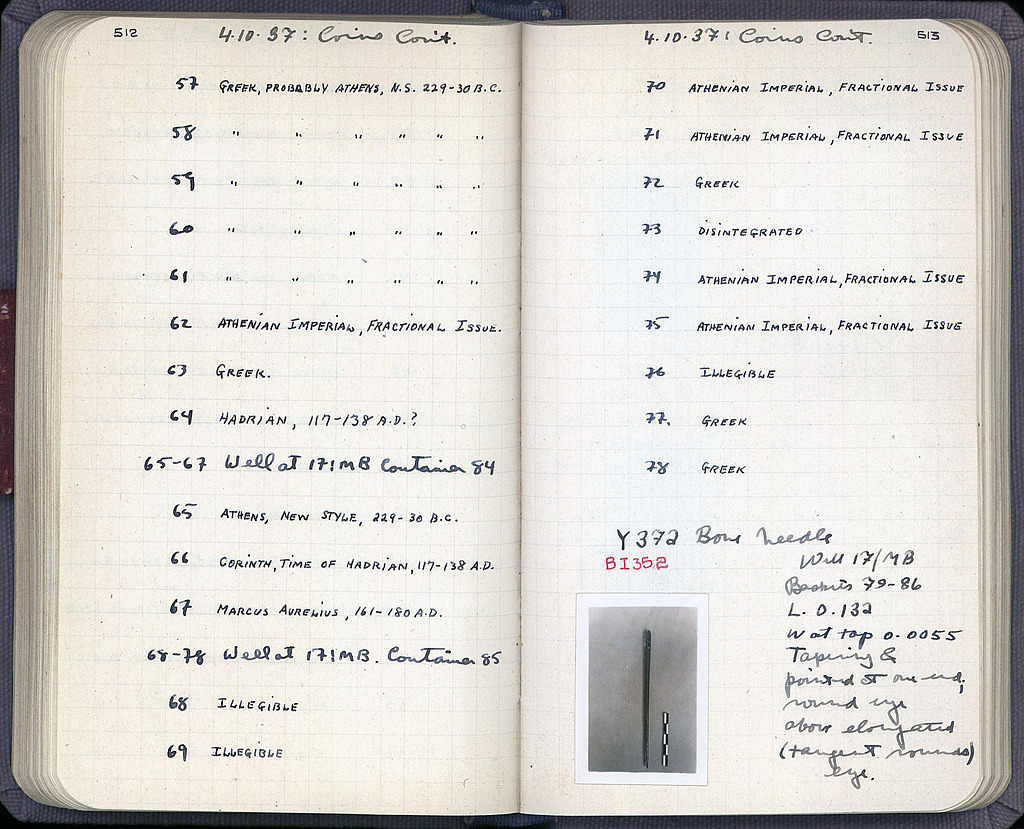 512
4.10.37: Coins Cont.
57 GREEK, PROBABLY ATHENS, N.S. 229-30 B.C.
58 " " " " " "
59 " " " " " "
60 " " " " " "
61 " " " " " "
62 ATHENIAN IMPERIAL, FRACTIONAL ISSUE.
63 GREEK.
64 HADRIAN, 117-138 A.D.?
65-67 Well at 17/MB Container 84
65 ATHENS, NEW STYLE, 229-30 B.C.
66 CORINTH, TIME OF HADRIAN, 117-138 A.D.
67 MARCUS AURELIUS, 161-180 A.D.
68-78 Well at 17/MB. Container 85
68 ILLEGIBLE
69 ILLEGIBLE
4.10.37: Coins Cont. 513
70 ATHENIAN IMPERIAL, FRACTIONAL ISSUE
71 ATHENIAN IMPERIAL, FRACTIONAL ISSUE
72 GREEK
73 DISINTEGRATED
74 ATHENIAN IMPERIAL, FRACTIONAL ISSUE
75 ATHENIAN IMPERIAL, FRACTIONAL ISSUE
76 ILLEGIBLE
77. GREEK
78 GREEK
Y 372 Bone needle
BI 352
Well 17/MB
Baskets 79-86
L. 0.132
W at top 0.0055
Tapering &
pointed at one end,
round eye
above elongated
(tangent rounds)
eye.